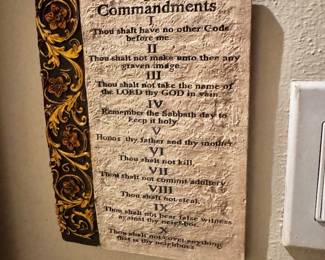 Commandments
I
Thou shalt have no other Gods
before me.
II
Thou shalt not make unto thee any
graven image.
III
Thou shalt not take the name of
the LORD thy GOD in vain.
IV
Remember the Sabbath day to
keep it holy.
V
Honor thy father and thy mother.
VI
Thou shalt not kill.
VII
Thou shalt not commit adultery.
VIII
Thou shalt not steal.
IX
Thou shalt not bear false witness
against thy neighbor.
X
Thou shalt not covet anything
that is thy neighbors.